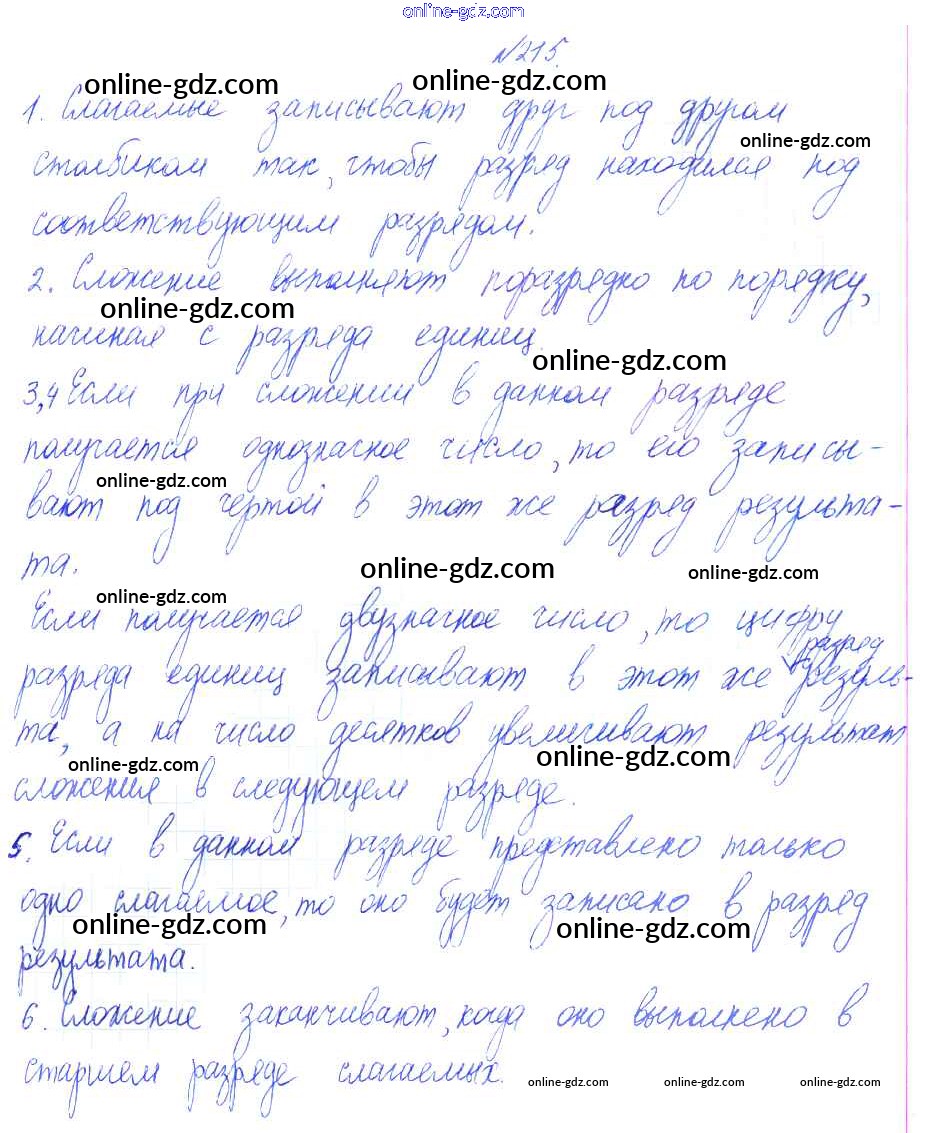 online-gdz.com
№215.
online-gdz.com online-gdz.com
1. Слагаемые записывают друг под другом
online-gdz.com
столбиком так, чтобы разряд находился под
соответствующим разрядом.
2. Сложение выполняют поразрядно по порядку,
online-gdz.com
начиная с разряда единиц.
online-gdz.com
3,4 Если при сложении в данном разряде
получается однозначное число, то его записы-
online-gdz.com
вают под чертой в этот же разряд результа-
та.
online-gdz.com online-gdz.com
online-gdz.com
Если получается двузначное число, то цифру
разряд
разряда единиц записывают в этот же резуль-
та, а на число десятков увеличивают результат
online-gdz.com online-gdz.com
сложения в следующем разряде.
5. Если в данном разряде представлено только
одно слагаемое, то оно будет записано в разряд
online-gdz.com online-gdz.com
результата.
6. Сложение заканчивают, когда оно выполнено в
старшем разряде слагаемых.
online-gdz.com online-gdz.com online-gdz.com